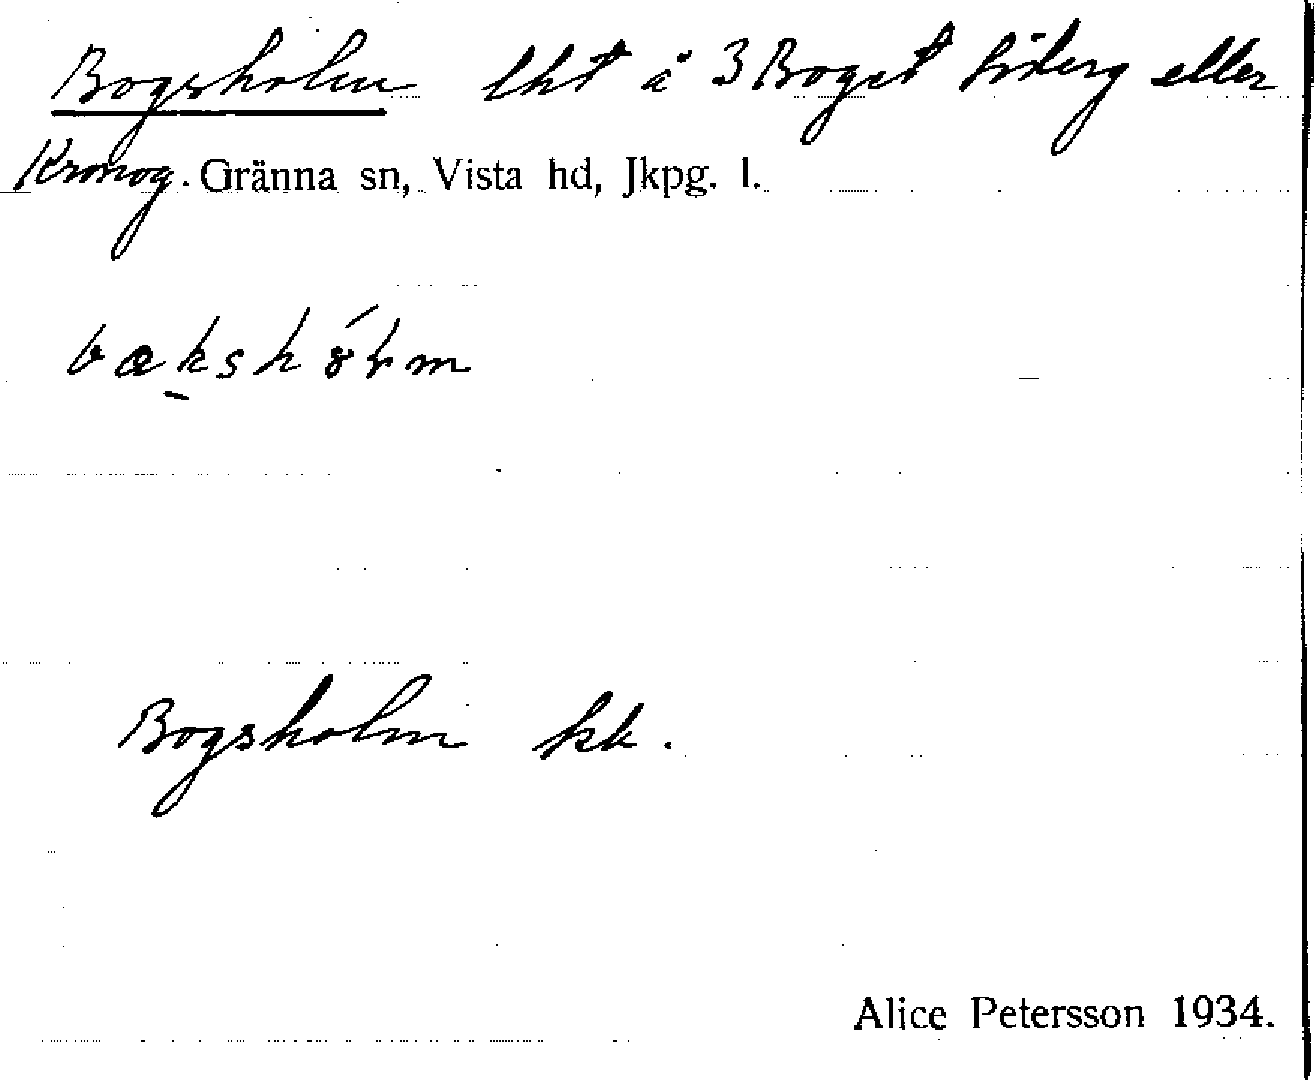 Bogsholm lht å 3 Boget Söderg eller
Kronog. Gränna sn, Vista hd, Jkpg. l.
Bogsholm kk.
Alice Petersson 1934.